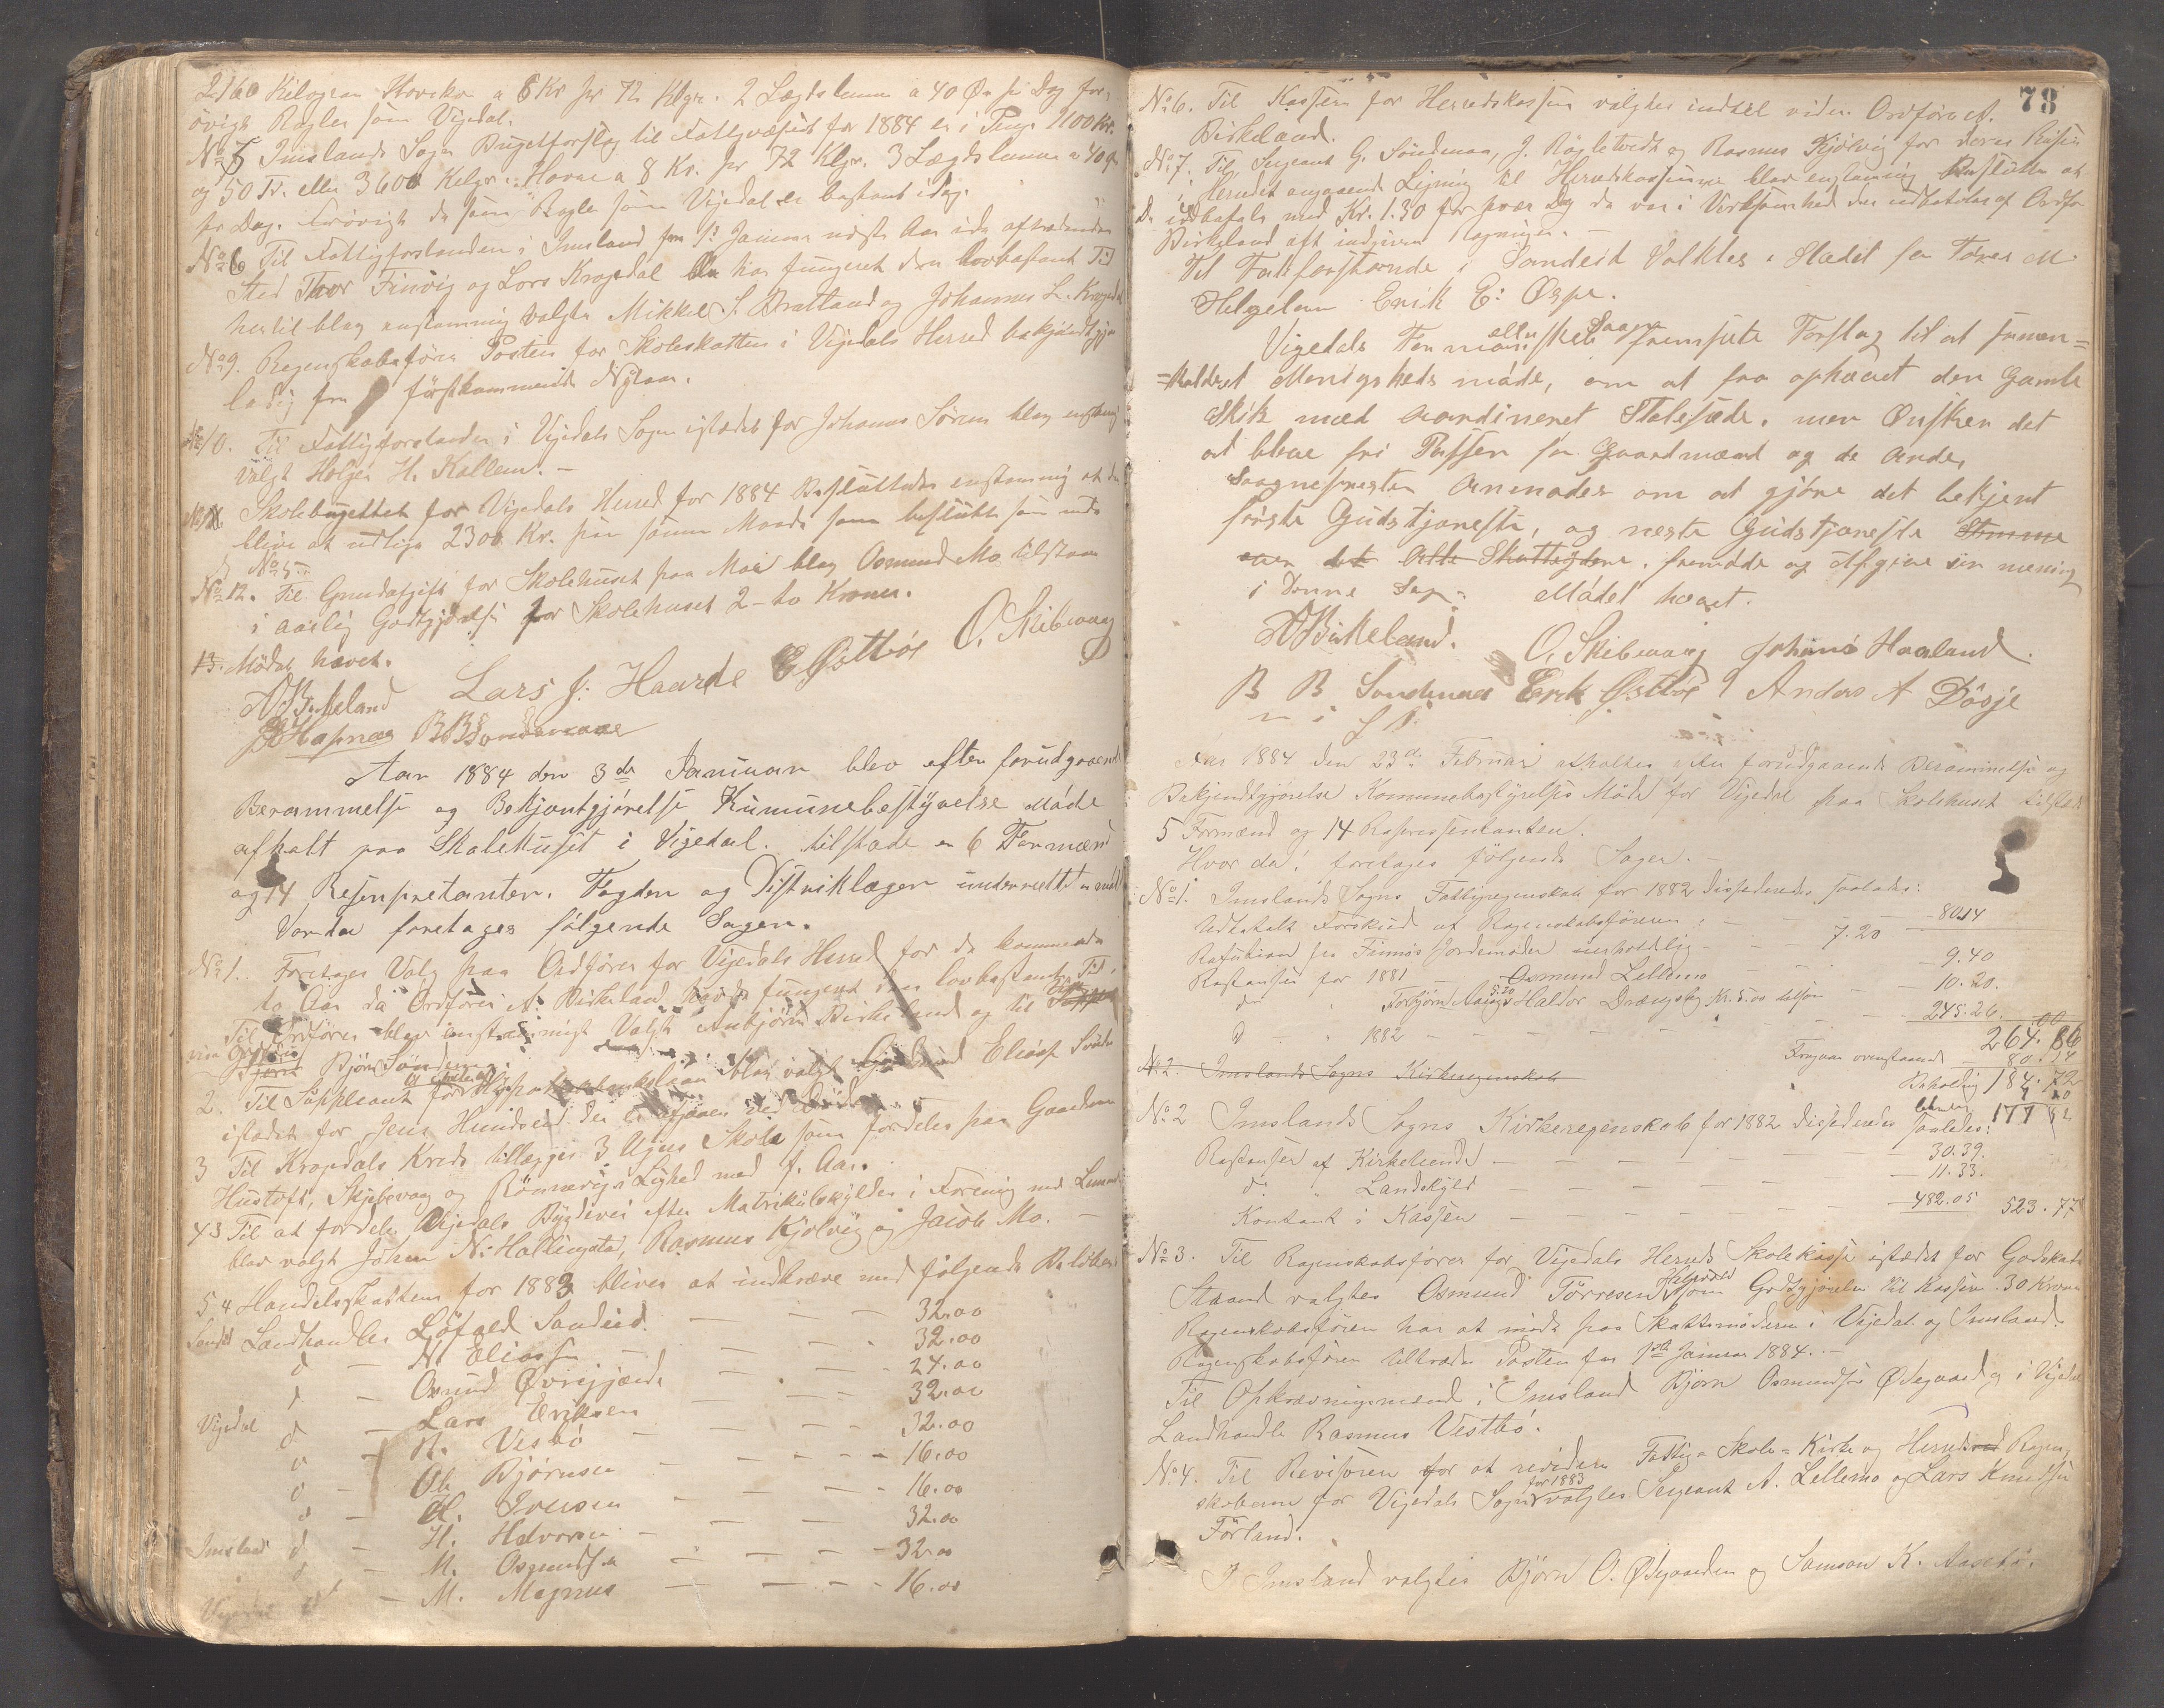 2160 Kilogram Havrekor a 6 Kr pr 72 Klgr. 2 Lægdslemm a 40 Ør pr Dag for
övrigt Regler som Vigedal.
No 5 Imslands Sogn Bugetforslag til Fattigvæsenet for 1884 er i Penge 1100 Kr.
og 50 Td. eller 3600 Kilgr. Havre a 8 Kr. pr 72 Klgr. 3 Lægdslemm a 40 Ør
pr Dag. Forövrigt de samme Regler som Vigedal er bestemt idag.
No 6 Til Fattigforstander i Imsland fra 1st Januar næste Aar i de aftrædendes
Sted Thor Finvig og Lars Kropdal har fungeret den lovbestemt Tid
hertil blev enstemmig valgte Mikkel S. Bratland og Johannes L. Kropdal
No 9. Regenskabsförer Posten for Skoleskatten i Vigedals Herred bekjendtgjøres
ledig fra förstkommende Nytaar.
No 10. Til Fattigforstander i Vigedals Sogn istædet for Johannes Sörens blev enstemig
Valgt Holger H. Kallem. —
No 11 Skolebugettet for Vigedals Herred for 1884 Besluttedes enstemmig at der
blive at udligne 2300 Kr. paa samme Maade som besluttet som under
No 5.
No 12. Til Grundafgift for Skolehuset paa Moe blev Osmund Mo tilstaaet
i aarlig Godtgjörelse for Skolehuset 2 - to Kroner.
13. Mödet hævet.
A Birkeland Lars J. Haarde E Østbøe O. Skibevaag
Hapnes B B Söndenaae
Aar 1884 den 3de Januar blev efter forudgaaende
Berammelse og Bekjentgjörelse Kumunebestyrelse Møde
afholt paa Skolehuset i Vigedal. tilstæde er 6 Formænd
og 14 Represpretanter. Fogden og Distriklægen underrettet om mødet
Vor da foretages fölgende Sager.
No 1. Foretages Valg paa Ordförer for Vigedals Herred for de kommende
to Aar da Ordförer A. Birkeland havde fungeret den lovbestemte Tid.
Til Ordförer blev enstemmigt Valgt Anbjörn Birkeland og til
Björn Sönden
2. Til Suppleant for blev valgt Elias Svide
istædet for Jens Hundseid der er
3 Til Kropdals Kreds tillægges 3 Ugers Skole som fordeles paa Gaardene
Hustoft, Skjebevaag og Rönnevig i Lighed med f. Aar.
43 Til at fordele Vigedals Bygdevei efter Matrikulskylden i Forening med Lensm
blev valgt Johan N. Hallingstad, Rasmus Kjölvig og Jacob Mo. —
5 4 Handelsskatten for 1883 bliver at indkræve med følgende Belöber:
Sandeid Landhandler Löfald Sandeid — — — 32.00
d — N. Eliassen — — — 32.00
d — Omund Øvregjærde — — — 24.00
Vigedal d — Lars Eriksen — — — 32.00
d — R. Vestbö — — — 32.00
d — Ole Bjørnsen — — — 16.00
d — H. Iversen — — — 16.00
Imsland d — H. Halvorsen — — — 32.00
d — M. Osmundsen — — — 32.00
Vigedal d — M. Magnus — — — 16.00
78
No 6. Til Kasserer for Herredskassen valgtes indtil videre Ordförer A.
Birkeland.
No 7. Til Sergeant G. Söndenaa, J. Rögletvedt og Rasmus Kjölvig for deres Reiser
i Herredet angaaende Ligning til Herredskassen blev enstemig Besluttet at
De indbetales med Kr. 1.50 for hver Dag de var i Virksomhed der udbetales af Ordfr
Birkeland aft indgiven Regninger. —
Til Fatiforstørnde i Sandeid Valktes i Stædet for Tører M
Helgeland Erik E: Øspe.
Vigedals Formanskab eller Saagn fremsate Forslag til at saman=
=kaldeset Menigheds møde, om at faa ophævet den Gamle
Skik med aardineret Stolesæde. men Ønsker det
at bleve fri Passer for Gaardmænd og de Andre,
Saagnepresten Anmodes om at gjöre det bekjent
første Gudstjeneste, og næste Gudstjeneste Stemme
over det Alle Skatteydere. fremödde og Afgive sin mening
i Denne Sag. Mødet hævet.
A Birkeland. O. Skibevaag Johanes Haaland.
B B Sondenaa Erik Østbö Anders A Dösje
Aar 1884 den 23de Februar afholtes efter forudgaaende Berammelse og
Bekjendtgjørelse Kommunebestyrelses Møde for Vigedal paa Skolehuset tilstæde
5 Formænd og 14 Represæntanter.
Hvor da! foretages fölgende Sager. —
No 1. Imslands Sogns Fattigregnskab for 1882 dissideredes saaledes:
Udbetalt Forskud af Regenskabsföreren — — — 80.14
Refution fra Finnøs Jordemoder uerholdelig — — 7.20
Restanser for 1881 — Osmund Lellemo — — 9.40
do " Torbjörn Haldor Drængstig Kr. 5.00 tilsam — — 10.20.
d " 1882 — — — 245.26.
264.86
Fragaar ovenstaaende 80.14
Beholdnig 184.72
No 2. Imslands Sogns Kirkeregenskab
177 52
No 2 Imslands Sogns Kirkeregenskab for 1882 dissideredes saaledes:
Restanser af Kirketiende — — — — — 30.39.
do " Landskyld — — — — — 11.33.
Kontant i Kassen — — — — — 482.05 523.77
No 3. Til Regenskabsförer for Vigedals Herreds Skolekasse istædet for Godskalk
Straand valgtes Osmund Törresen Halvard som Godtgjørelse til Kasseren 30 Kroner
Regenskabsföreren har at möde paa Skattemöderne i Vigedal og Imsland.
Regenskabsföreren tiltræder Posten fra 1ste Januar 1884. —
Til Opkrævningsmænd i Imsland Björn Osmundsen Ødegaard og i Vigedal
Landhandler Rasmus Vestbö.
No 4. Til Revisorer for at revidere Fattig= Skole= Kirke og Herreds Regen
skaberne for Vigedals Sogn for 1883 valgtes Sergeant A. Lellemo og Lars Knudsen
Förland.
I Imsland valgtes Björn O. Ødegaarden og Samson K. Aasebö.